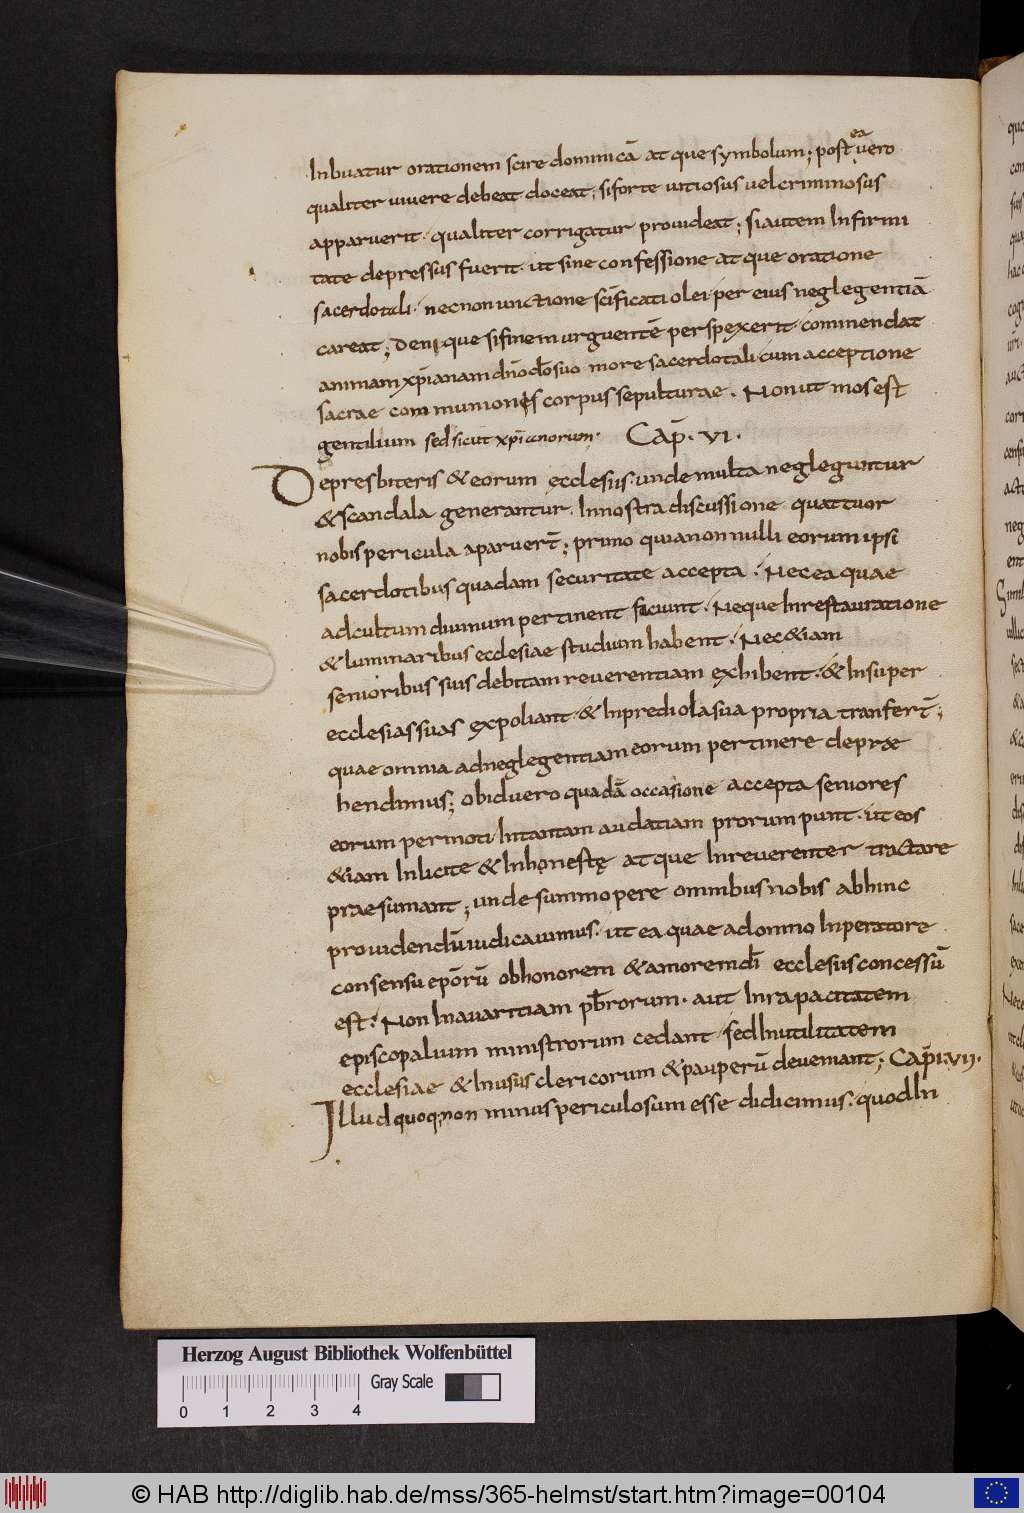 Inbuatur orationem scire dominicā atque symbolum; post ea vero
qualiter vivere debeat doceat; si forte vitiosus vel criminosus
apparuerit. qualiter corrigatur provideat; si autem Infirmi
tate depressus fuerit. ut sine confessione atque oratione
sacerdotali. necnon unctione scīficati olei. per eius neglegentiā
careat; Denique si finem urguentē perspexerit. commendat
animam xp̄ianam dn̄o dō suo more sacerdotali. cum acceptione
sacrae communionis corpus sepulturae. Non ut mos est
gentilium sed sicut xp̄ianorum. Cap̄. VI.
De presbiteris & eorum ecclesiis. unde multa negleguntur
& scandala generantur. In nostra discussione quattuor
nobis pericula aparuert̄; primo quia nonnulli eorum ipsi
sacerdotibus quadam securitate accepta. Nec ea quae
ad cultum divinum pertinent faciunt. Neque In restauratione
& luminaribus ecclesiae studium habent. Nec &iam
senioribus suis debitam reverentiam exhibent. & Insuper
ecclesias suas expoliant. & In prediola sua propria tranfert̄;
quae omnia ad neglegentiam eorum pertinere deprae
hendimus; ob id vero quadā occasione accepta seniores
eorum permoti. In tantam audatiam prorumpunt. ut eos
&iam Inlicite & Inhonestę atque Inreverenter tractare
praesumant; unde summopere omnibus nobis abhinc
providendū iudicavimus. ut ea quae a domno Inperatore
consensu ep̄orū ob honorem & amorem dī ecclesiis concessū
est. Non In avaritiam pb̄rorum. aut In rapacitatem
episcopalium ministrorum cedant. sed In utilitatem
ecclesiae & In usus clericorum & pauperū deveniant; Cap̄i. VII.
Illud quoq; non minus periculosum esse didicimus. quod In
Herzog August Bibliothek Wolfenbüttel
Gray Scale
0 1 2 3 4
© HAB http://diglib.hab.de/mss/365-helmst/start.htm?image=00104